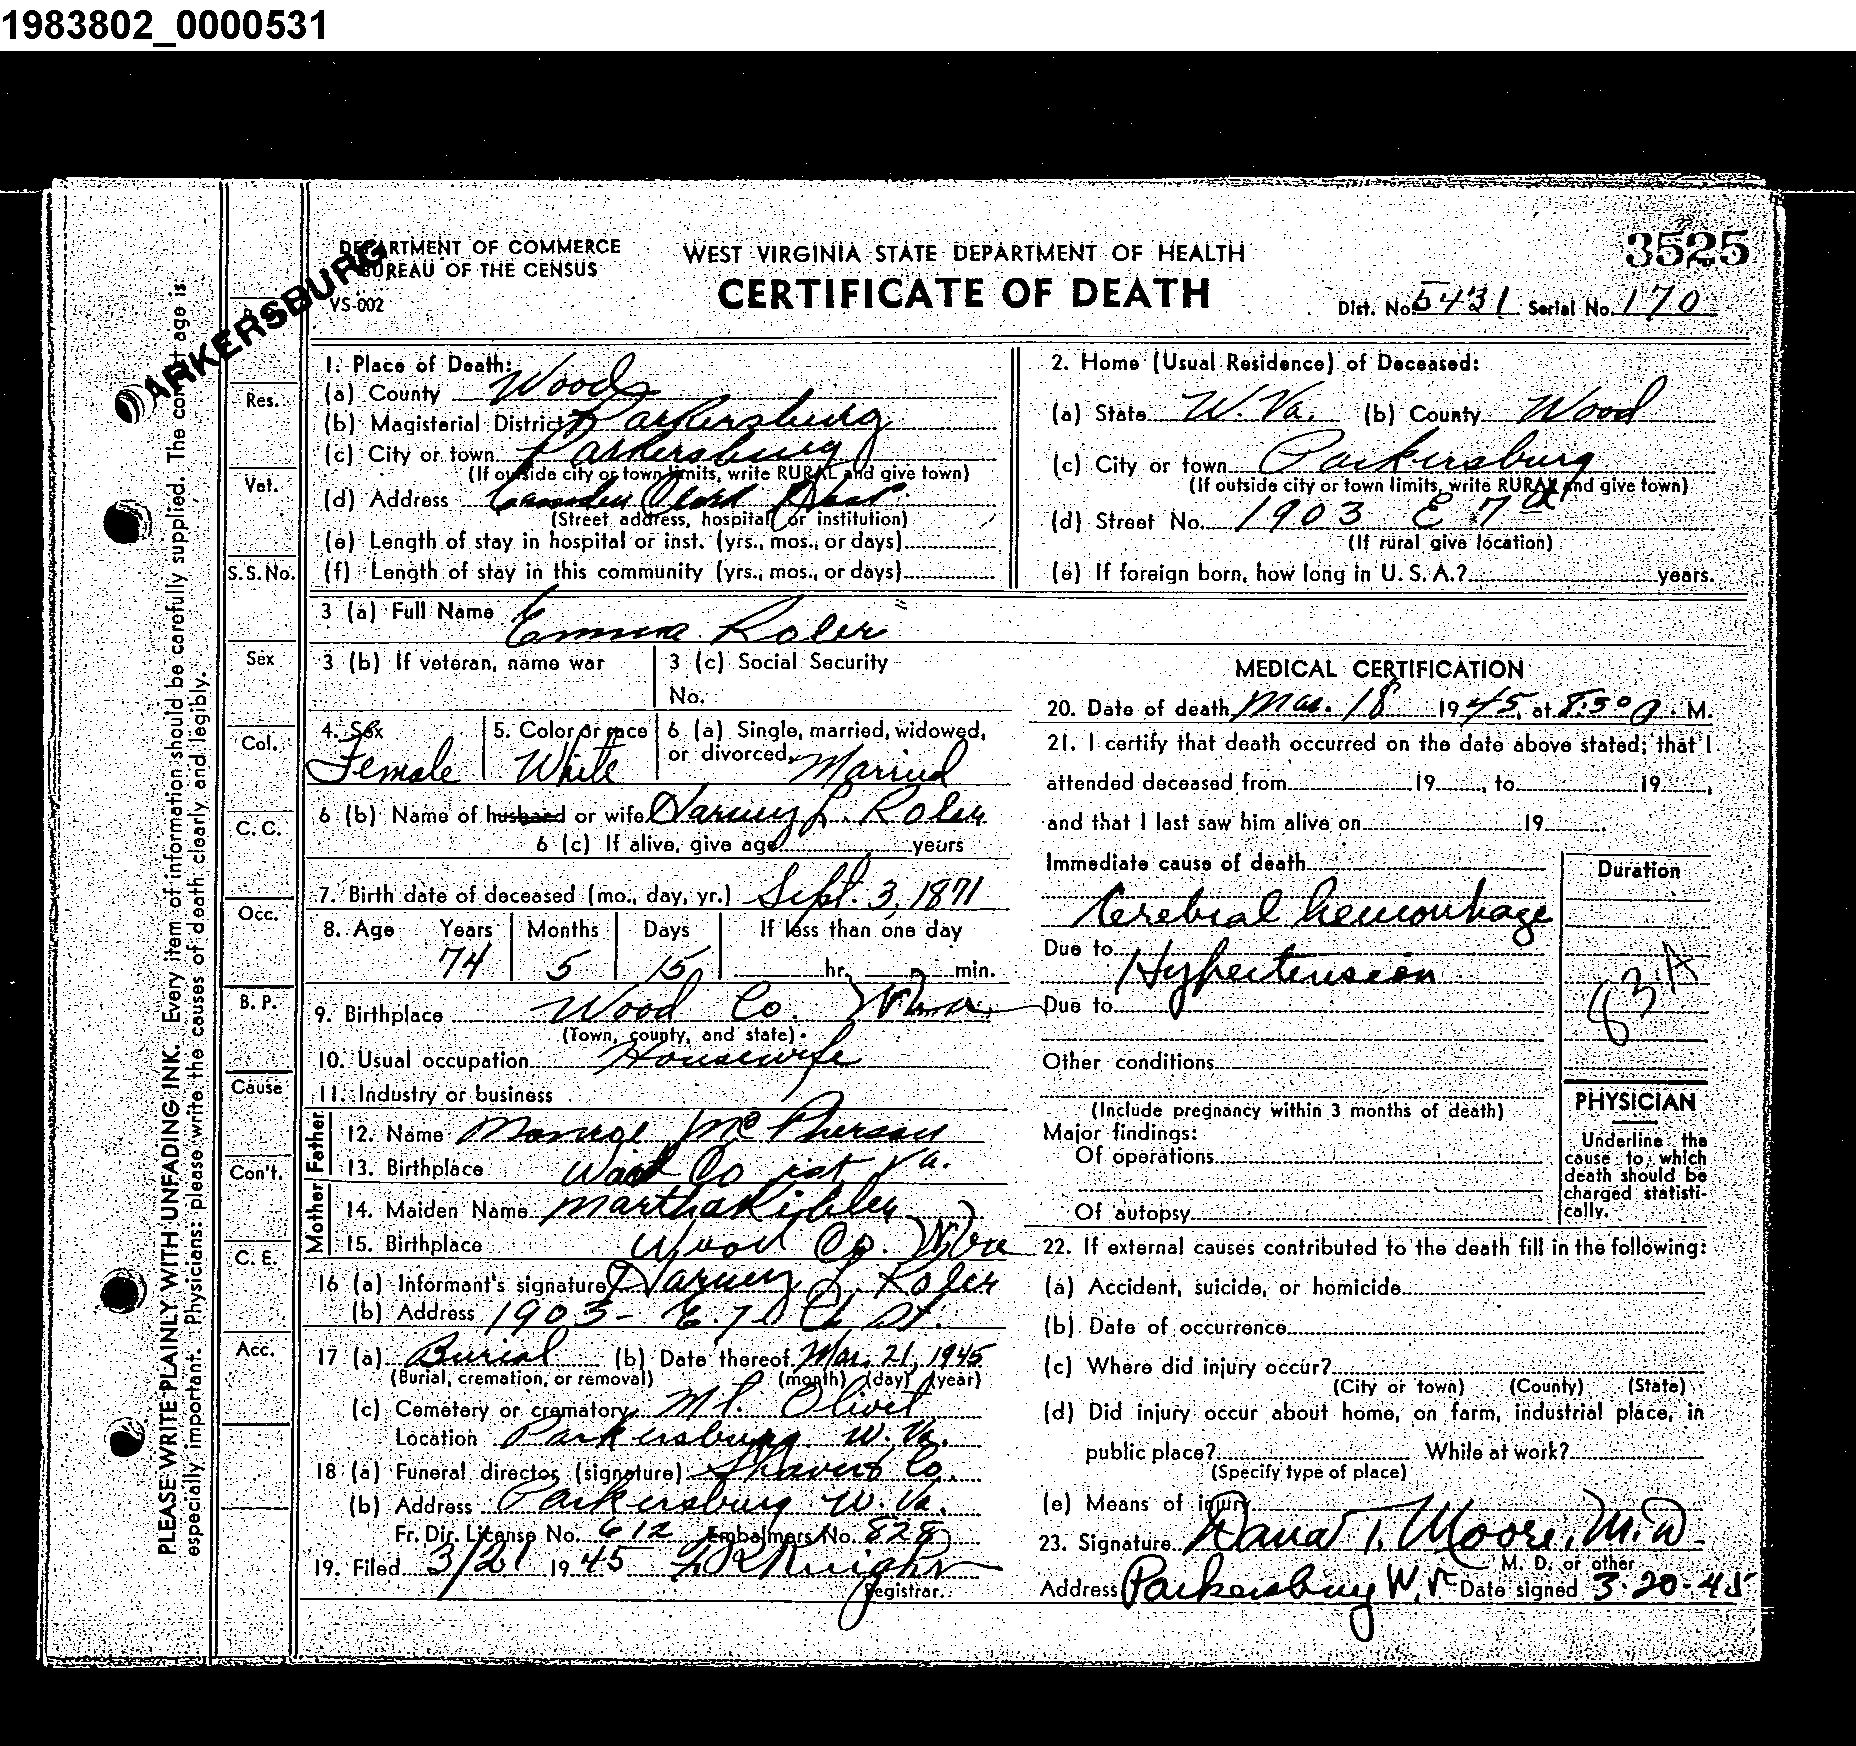 1983802_0000531
PARKERSBURG
DEPARTMENT OF COMMERCE
BUREAU OF THE CENSUS
VS-002
WEST VIRGINIA STATE DEPARTMENT OF HEALTH
CERTIFICATE OF DEATH
3525
Dist. No. 5431 Serial No. 170
1. Place of Death:
(a) County Wood
(b) Magisterial District Parkersburg
(c) City or town Parkersburg
(If outside city or town limits, write RURAL and give town)
(d) Address Camden Clark Hosp.
(Street address, hospital or institution)
(e) Length of stay in hospital or inst. (yrs., mos., or days)
(f) Length of stay in this community (yrs., mos., or days)
2. Home (Usual Residence) of Deceased:
(a) State W. Va. (b) County Wood
(c) City or town Parkersburg
(If outside city or town limits, write RURAL and give town)
(d) Street No. 1903 E 7th
(If rural give location)
(e) If foreign born, how long in U. S. A.? years.
3 (a) Full Name Emma Roler
3 (b) If veteran, name war
3 (c) Social Security
No.
4. Sex
Female
5. Color or race
White
6 (a) Single, married, widowed,
or divorced, Married
6 (b) Name of husband or wife Harvey L. Roler
6 (c) If alive, give age years
7. Birth date of deceased (mo., day, yr.) Sept. 3, 1871
8. Age Years Months Days If less than one day
74 5 15 hr. min.
9. Birthplace Wood Co.
(Town, county, and state)
10. Usual occupation Housewife
11. Industry or business
Father
12. Name McPherson
13. Birthplace Wood Co Va.
Mother
14. Maiden Name Martha
15. Birthplace Wood Co. W Va
16 (a) Informant's signature Harvey L. Roler
(b) Address 1903 - E. 7th St.
17 (a) Burial (b) Date thereof Mar. 21, 1945
(Burial, cremation, or removal) (month) (day) (year)
(c) Cemetery or crematory Mt. Olivet
Location Parkersburg W. Va.
18 (a) Funeral director (signature) Co.
(b) Address Parkersburg W. Va.
Fr. Dir. License No. 612 Embalmers No. 828
19. Filed 3/21 1945 Knight
Registrar.
MEDICAL CERTIFICATION
20. Date of death Mar. 18 1945, at 8:50 P. M.
21. I certify that death occurred on the date above stated; that I
attended deceased from 19 , to 19 ,
and that I last saw him alive on 19 .
Immediate cause of death
Cerebral hemorrhage
Due to
Hypertension
Due to
Other conditions
(Include pregnancy within 3 months of death)
Major findings:
Of operations
Of autopsy
Duration
83 A
PHYSICIAN
Underline the
cause to which
death should be
charged statisti-
cally.
22. If external causes contributed to the death fill in the following:
(a) Accident, suicide, or homicide
(b) Date of occurrence
(c) Where did injury occur?
(City or town) (County) (State)
(d) Did injury occur about home, on farm, industrial place, in
public place? While at work?
(Specify type of place)
(e) Means of injury
23. Signature Dana T. Moore, M.D.
M. D. or other
Address Parkersburg W. V. Date signed 3-20-45
Res.
Vet.
S.S.No.
Sex
Col.
C. C.
Occ.
B. P.
Cause
Con't.
C. E.
Acc.
PLEASE WRITE PLAINLY WITH UNFADING INK. Every item of information should be carefully supplied. The correct age is
especially important. Physicians: please write the causes of death clearly and legibly.